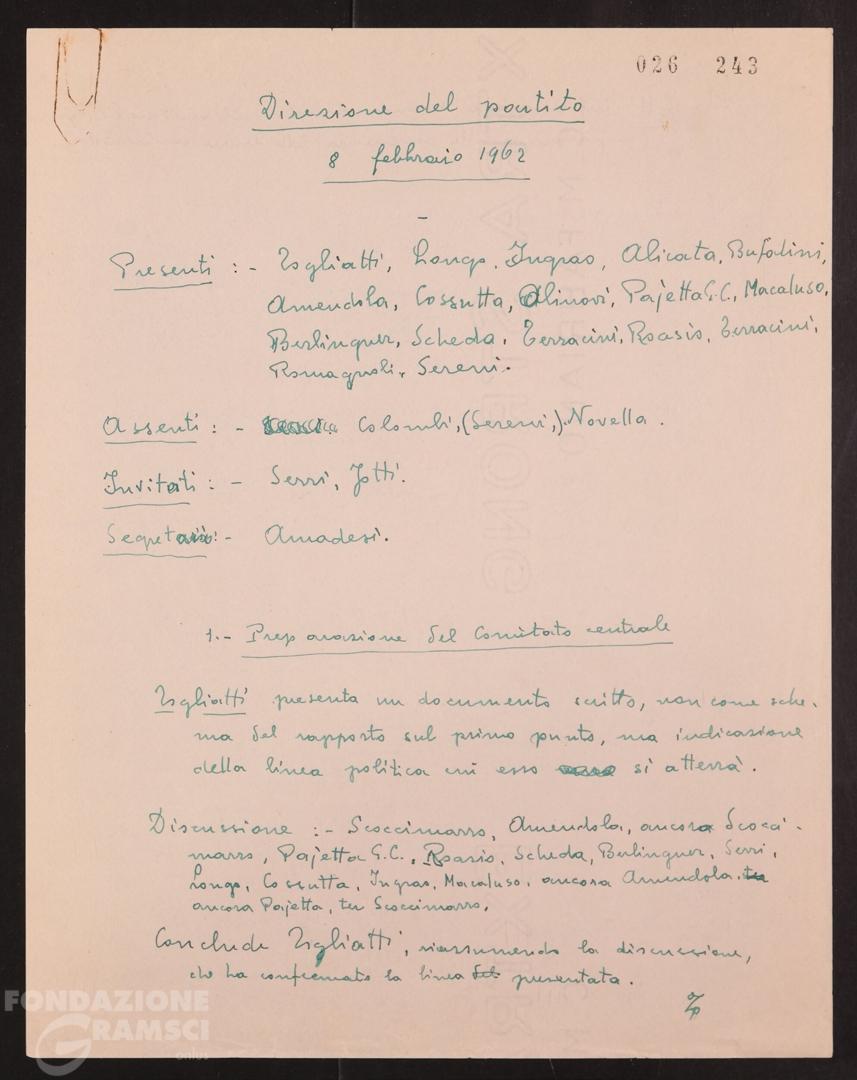 026 243
Direzione del partito
8 febbraio 1962
-
Presenti : - Togliatti, Longo, Ingrao, Alicata, Bufalini,
Amendola, Cossutta, Alinovi, Pajetta G.C., Macaluso,
Berlinguer, Scheda, Terracini, Roasio, Terracini,
Romagnoli, Sereni.
Assenti : - Colombi, (Sereni,) Novella.
Invitati : - Serri, Jotti.
Segretario: - Amadesi.
1.- Preparazione del Comitato centrale
Togliatti presenta un documento scritto, non come sche-
ma del rapporto sul primo punto, ma indicazione
della linea politica cui esso si atterrà.
Discussione : - Scoccimarro, Amendola, ancora Scocci-
marro, Pajetta G.C., Roasio, Scheda, Berlinguer, Serri,
Longo, Cossutta, Ingrao, Macaluso, ancora Amendola,
ancora Pajetta, Scoccimarro,
Conclude Togliatti, riassumendo la discussione,
che ha confermato la linea presentata.
FONDAZIONE
GRAMSCI
onlus